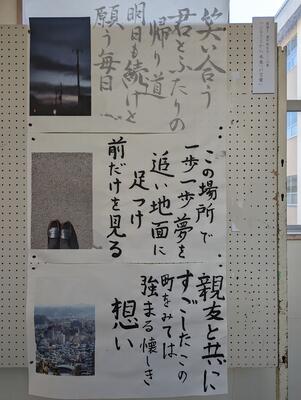 笑い合う
君とふたりの
帰り道
明日も続けと
願う毎日
この場所で
一歩一歩夢を
追い地面に
足つけ
前だけを見る
親友と共に
すごしたこの
町をみては
強まる懐しき
想い